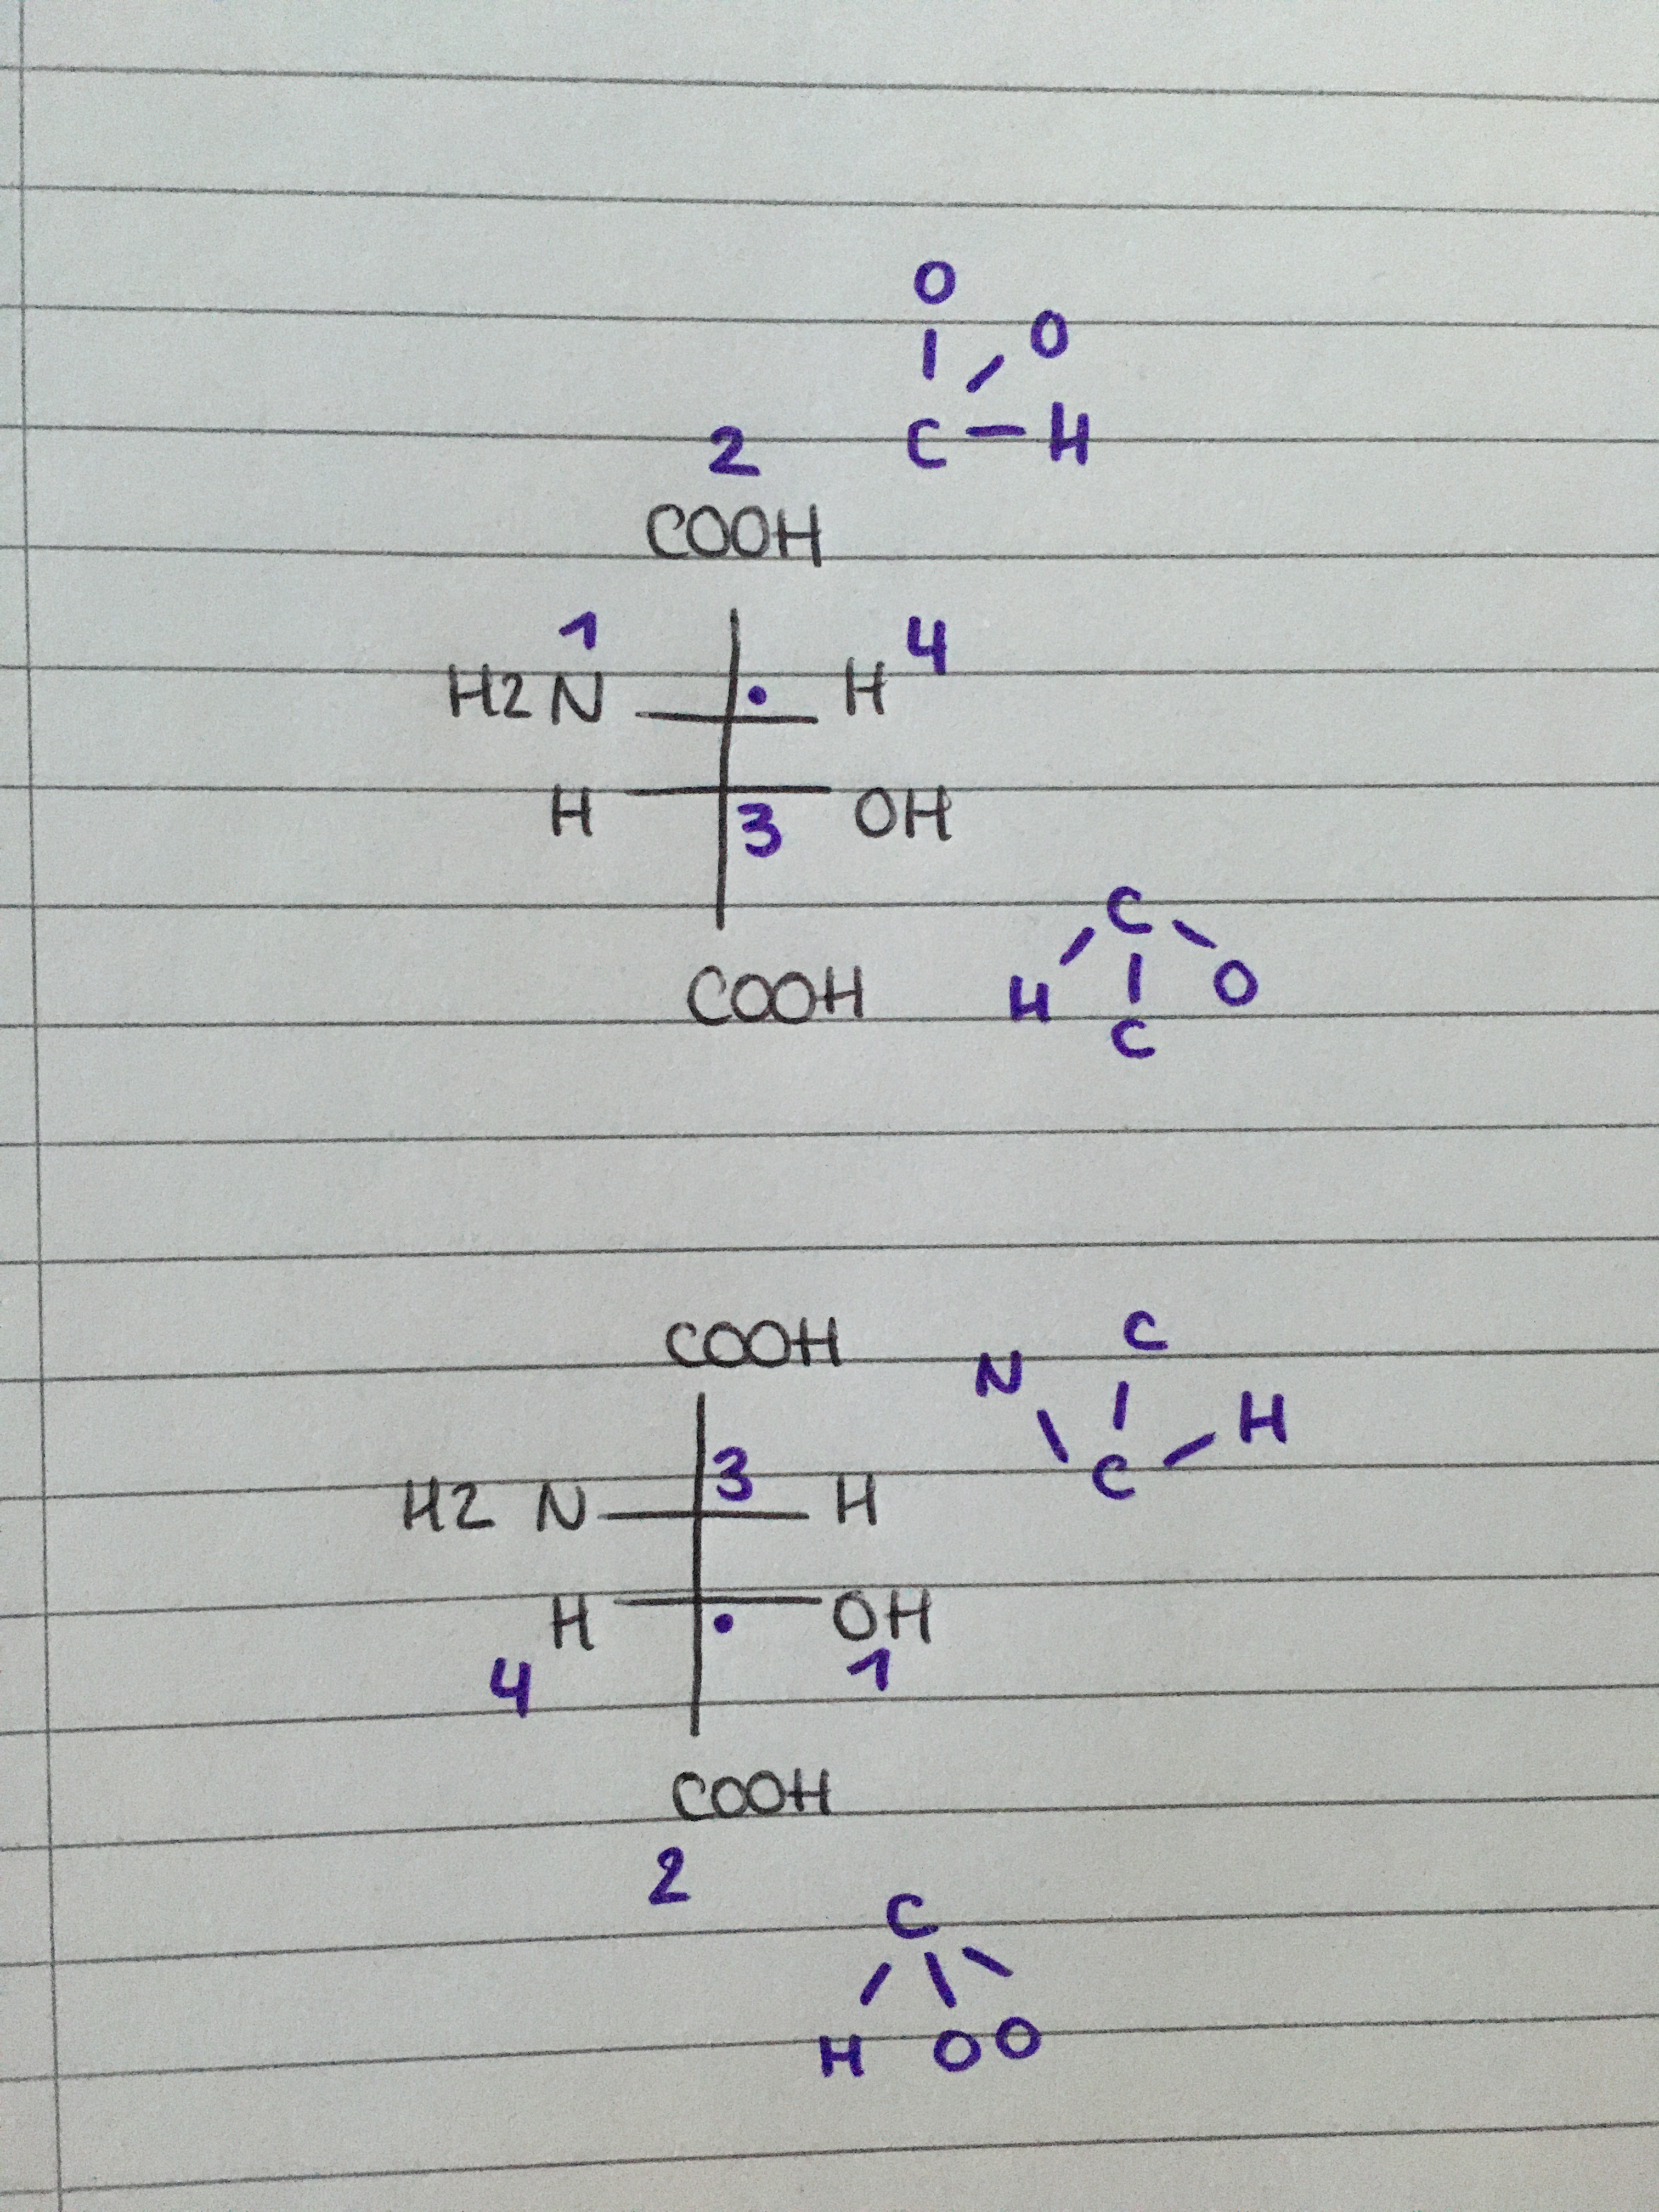 O
O
2 C - H
COOH
1 4
H2N H
H 3 OH
C
COOH H O
C
COOH C
N
3 H
H2 N H C
H OH
4 1
COOH
2
C
H O O